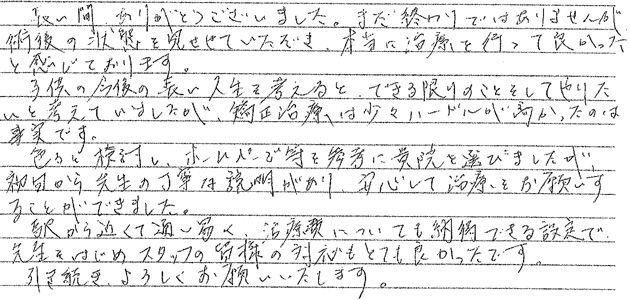 長い間、ありがとうございました。まだ終わりではありませんが
術後の状態を見せていただき、本当に治療を行って良かった
と感じております。
子供の今後の長い人生を考えると、できる限りのことをしてやりた
いと考えていましたが、矯正治療は少々ハードルが高かったのは
事実です。
色々と検討し、ホームページ等を参考に貴院を選びましたが、
初回から先生の丁寧な説明があり、安心して治療をお願いす
ることができました。
駅から近くて通い易く、治療費についても納得できる設定で、
先生をはじめスタッフの皆様の対応もとても良かったです。
引き続き、よろしくお願いいたします。